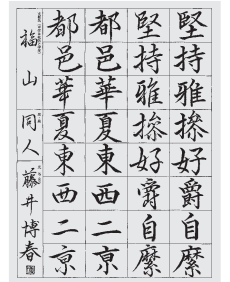 堅持雅操好爵自縻
堅持雅操好爵自縻
都邑華夏東西二亰
都邑華夏東西二亰
福山 同人 藤井博春